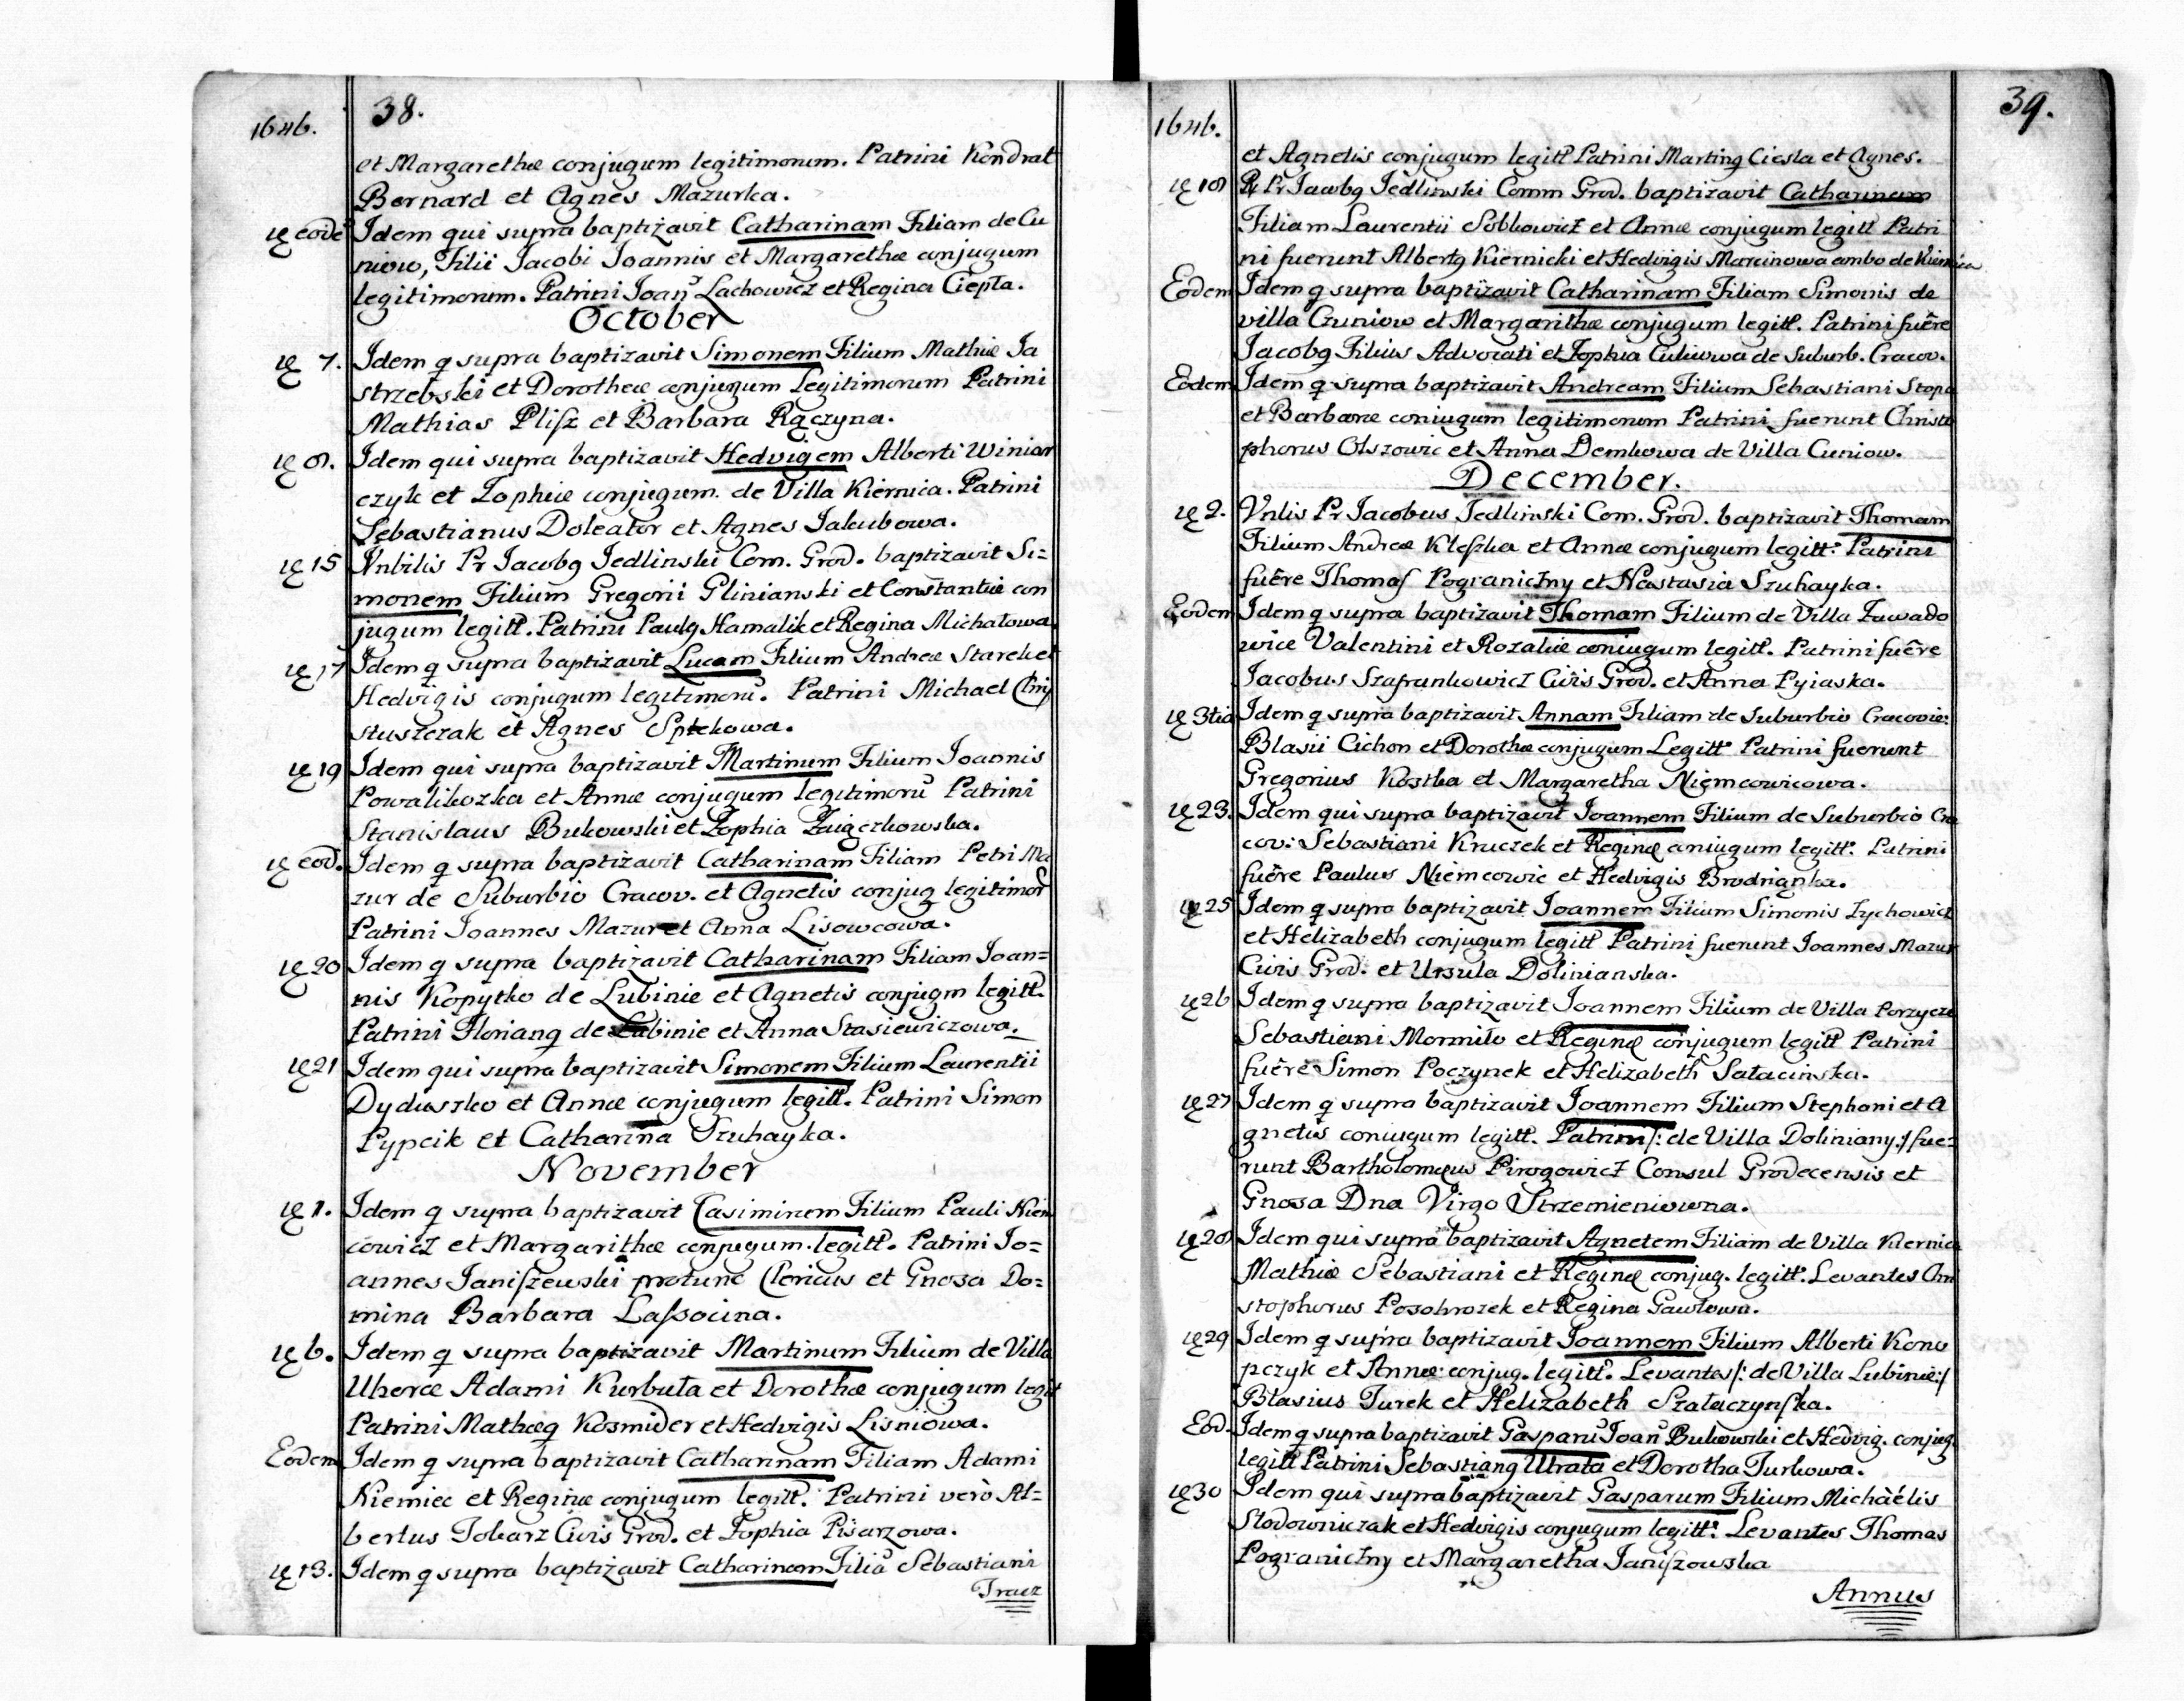 1646.
38.
et Margarethæ conjugum legitimorum. Patrini Kondrat
Bernard et Agnes Mazurka.
eodē Idem qui supra baptizavit Catharinam Filiam de Cu
niow, Filii Jacobi Joannis et Margarethæ conjugum
legitimorum. Patrini Joan̄ Lachowicz et Regina Ciepła.
October
7. Idem q supra baptizavit Simonem Filium Mathiæ Ja
strzębski et Dorotheæ conjugum Legitimorum Patrini
Mathias Plisz et Barbara Rączyna.
8. Idem qui supra baptizavit Hedvigem Alberti Winiar
czyk et Zophiæ conjugum. de Villa Kiernica. Patrini
Sebastianus Doleator et Agnes Jakubowa.
15 Vnbilis Pr Jacobq Jedlinski Com. Grod. baptizavit Si=
monem Filium Gregorii Glinianski et Constantiæ con
jugum legitt. Patrini Paulq Hamalik et Regina Michałowa.
17 Idem q supra baptizavit Lucam Filium Andreæ Starek et
Hedvigis conjugum legitimorū. Patrini Michael Chry
stuszczak et Agnes
19 Idem qui supra baptizavit Martinum Filium Joannis
Powalikozka et Annæ conjugum legitimorū Patrini
Stanislaus Bukowski et Zophia Zaigczkowska.
eod. Idem q supra baptizavit Catharinam Filiam Petri Ma
zur de Suburbio Cracov. et Agnetis conjug legitimor
Patrini Joannes Mazur et Anna Lisowcowa.
20 Idem q supra baptizavit Catharinam Filiam Joan=
nis Kopytko de Lubinie et Agnetis conjugm legitt.
Patrini Florianq de Lubinie et Anna Stasiewiczowa.
21 Idem qui supra baptizavit Simonem Filium Laurentii
Dyduszko et Annæ conjugum legitt. Patrini Simon
Pypcik et Catharina Szuhayka.
November
1. Idem q supra baptizavit Casimirum Filium Pauli Niem
cowicz et Margarithæ conjugum legitt. Patrini Jo=
annes Janiszewski protunc Clericus et Gnosa Do=
mina Barbara Lassocina.
6. Idem q supra baptizavit Martinum Filium de Villa
Uherce Adami Kurbuta et Dorothæ conjugum legit
Patrini Mathæq Kosmider et Hedvigis Lisniowa.
Eodem Idem q supra baptizavit Catharinam Filiam Adami
Niemiec et Reginæ conjugum legitt. Patrini verò Al=
bertus Tokarz Civis Grod. et Zophia Pisarzowa.
13. Idem q supra baptizavit Catharinam Filiā Sebastiani
Tracz
1646.
39.
et Agnetis conjugum legitt Patrini Martinq Ciesla et Agnes.
18 R Pr Jacobq Jedlinski Comm Grod. baptizavit Catharinam
Filiam Laurentii Sobkowicz et Annæ conjugum legitt Patri
ni fuerunt Albertq Kiernicki et Hedvigis Marcinowa ambo de Kiernica
Eodem Idem q supra baptizavit Catharinam Filiam Simonis de
villa Czuniow et Margarithæ conjugum legitt. Patrini fuêre
Jacobq Filius Advocati et Zophia Culiowa de Suburb. Cracov.
Eodem Idem q supra baptizavit Andream Filium Sebastiani Stopa
et Barbaræ coniugum legitimorum Patrini fuerunt Christo
phorus Olszowic et Anna Demkowa de Villa Cuniow.
December.
2. Vnlis Pr Jacobus Jedlinski Com. Grod. baptizavit Thomam
Filium Andreæ Kleszka et Annæ conjugum legitt: Patrini
fuêre Thomas Pograniczny et Nastasia Szuhayka.
Eodem Idem q supra baptizavit Thomam Filium de Villa Zawado
wice Valentini et Rozaliæ coniugum legitt. Patrini fuêre
Jacobus Szafrankowicz Civis Grod. et Anna Pyiaska.
3tia Idem q supra baptizavit Annam Filiam de Suburbio Cracovie:
Blasii Cichon et Dorothæ conjugum Legitt Patrini fuerunt
Gregorius Kostka et Margaretha Niemcowicowa.
23. Idem qui supra baptizavit Joannem Filium de Suburbio Cra
cov: Sebastiani Kruczek et Reginæ coniugum legitt. Patrini
fuêre Paulus Niemcowic et Hedvigis Brodrianka.
25 Idem q supra baptizavit Joannem Filium Simonis Zychowicz
et Helizabeth conjugum legitt Patrini fuerunt Joannes Mazur
Civis Grod. et Ursula Dolinianska.
26 Idem q supra baptizavit Joannem Filium de Villa Porzycze
Sebastiani Mormiło et Reginæ conjugum legitt Patrini
fuêre Simon Poczynek et Helizabeth Satacinska.
27 Idem q supra baptizavit Joannem Filium Stephani et A
gnetis coniugum legitt. Patrini /: de Villa Doliniany :/ fue=
runt Bartholomæus Pirogowicz Consul Grodecensis et
Gnosa Dna Virgo Strzemieniowna.
28 Idem qui supra baptizavit Agnetem Filiam de Villa Kiernica
Mathiæ Sebastiani et Reginæ conjug. legitt. Levantes Chri
stophorus Posohrozek et Regina Gawłowa.
29 Idem q supra baptizavit Joannem Filium Alberti Kono
pczyk et Annæ conjug. legitt. Levantes /: de Villa Lubinie :/
Blasius Turek et Helizabeth Szataczynska.
Eod. Idem q supra baptizavit Gasparū Joan̄ Bukowski et Hedvig. conjug.
legitt Patrini Sebastianq Utrata et Dorotha Turkowa.
30 Idem qui supra baptizavit Gasparum Filium Michàélis
Stodowniczak et Hedvigis conjugum legitt: Levantes Thomas
Pograniczny et Margaretha Janiszowska
Annus